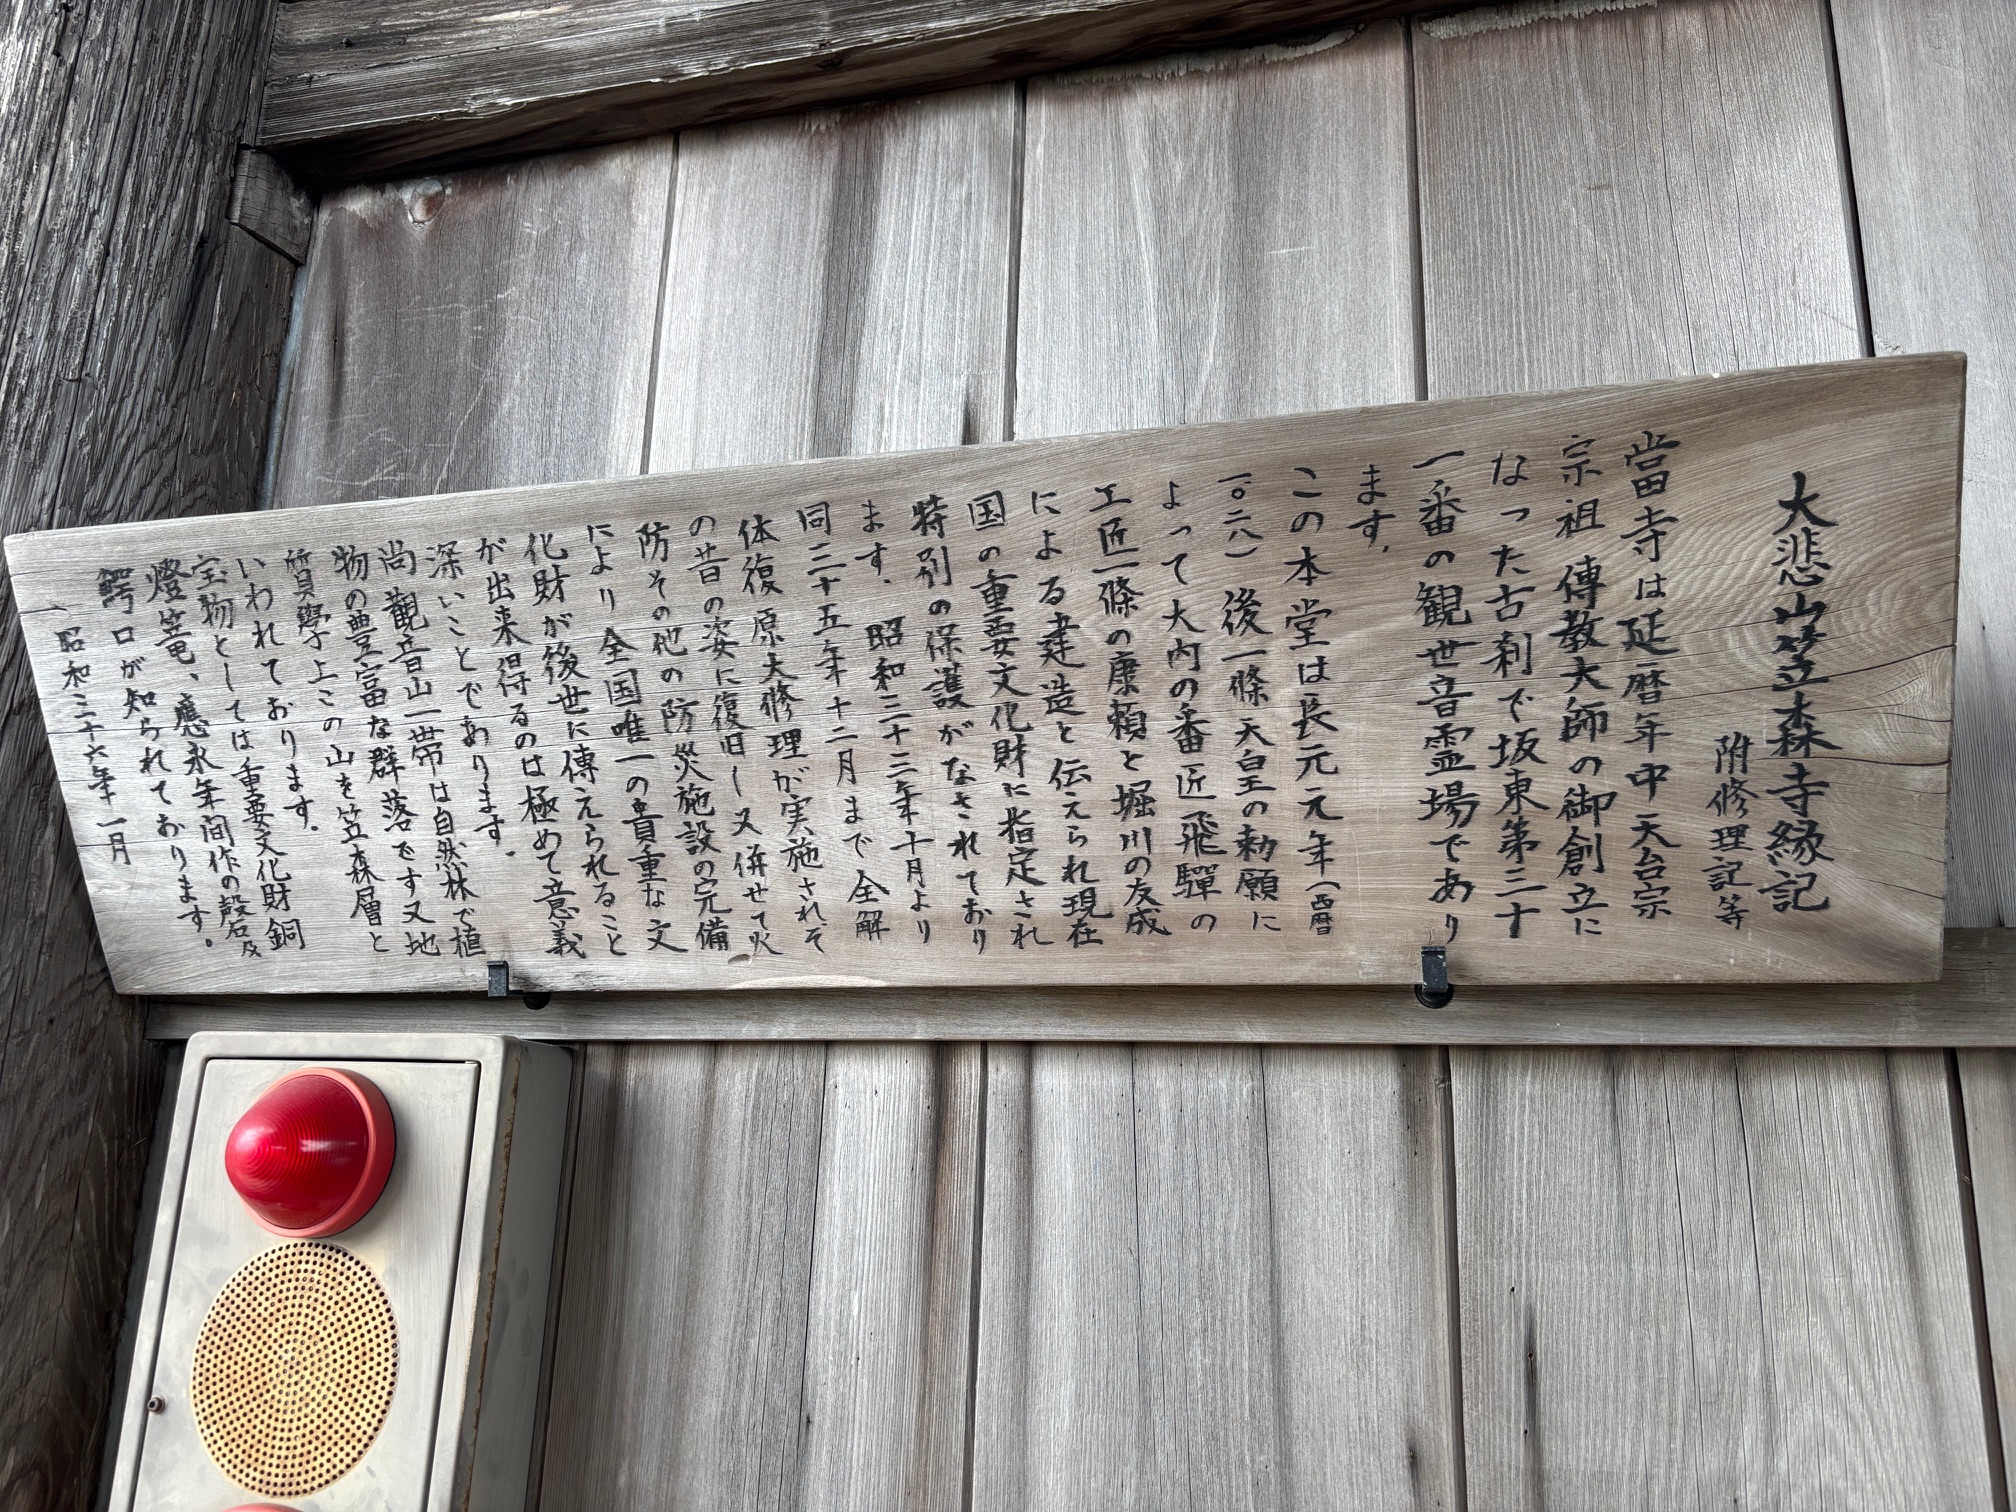 大悲山笠森寺縁記
附修理記等
當寺は延暦年中天台宗
宗祖傳教大師の御創立に
なった古刹で坂東第三十
一番の観世音霊場であり
ます.
この本堂は長元元年(西暦
一〇二八)後一條天皇の勅願に
よって大内の番匠飛驒の
工匠一條の康頼と堀川の友成
による建造と伝えられ現在
国の重要文化財に指定され
特別の保護がなされており
ます.昭和三十三年十月より
同三十五年十二月まで全解
体復原大修理が実施されそ
の昔の姿に復旧し又併せて火
防その他の防災施設の完備
により全国唯一の貴重な文
化財が後世に傳えられること
が出来得るのは極めて意義
深いことであります.
尚観音山一帯は自然林で植
物の豊富な群落です又地
質學上この山を笠森層と
いわれております.
宝物としては重要文化財銅
燈篭、應永年間作の殻石及
鰐口が知られております.
昭和三十六年一月